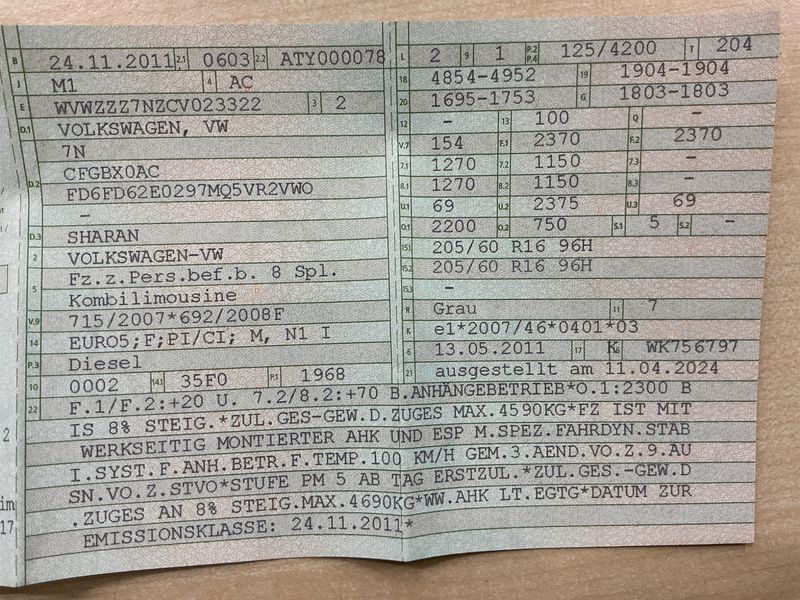 B 24.11.2011 2.1 0603 2.2 ATY000078
J M1 4 AC
E WVWZZZ7NZCV023322 3 2
D.1 VOLKSWAGEN, VW
7N
D.2 CFGBX0AC
FD6FD62E0297MQ5VR2VWO
–
D.3 SHARAN
2 VOLKSWAGEN-VW
5 Fz.z.Pers.bef.b. 8 Spl.
Kombilimousine
V.9 715/2007*692/2008F
14 EURO5;F;PI/CI; M, N1 I
P.3 Diesel
10 0002 14.1 35F0 P.1 1968
L 2 9 1 P.2 P.4 125/4200 T 204
18 4854-4952 19 1904-1904
20 1695-1753 G 1803-1803
12 – 13 100 Q –
V.7 154 F.1 2370 F.2 2370
7.1 1270 7.2 1150 7.3 –
8.1 1270 8.2 1150 8.3 –
U.1 69 U.2 2375 U.3 69
O.1 2200 O.2 750 S.1 5 S.2 –
15.1 205/60 R16 96H
15.2 205/60 R16 96H
15.3 –
R Grau 11 7
K e1*2007/46*0401*03
6 13.05.2011 17 K 16 WK756797
21 ausgestellt am 11.04.2024
22 F.1/F.2:+20 U. 7.2/8.2:+70 B.ANHÄNGEBETRIEB*O.1:2300 B
IS 8% STEIG.*ZUL.GES-GEW.D.ZUGES MAX.4590KG*FZ IST MIT
WERKSEITIG MONTIERTER AHK UND ESP M.SPEZ.FAHRDYN.STAB
I.SYST.F.ANH.BETR.F.TEMP.100 KM/H GEM.3.AEND.VO.Z.9.AU
SN.VO.Z.STVO*STUFE PM 5 AB TAG ERSTZUL.*ZUL.GES.-GEW.D
.ZUGES AN 8% STEIG.MAX.4690KG*WW.AHK LT.EGTG*DATUM ZUR
EMISSIONSKLASSE: 24.11.2011*
2
im
17